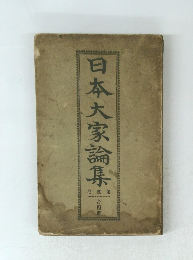 日本大家論集